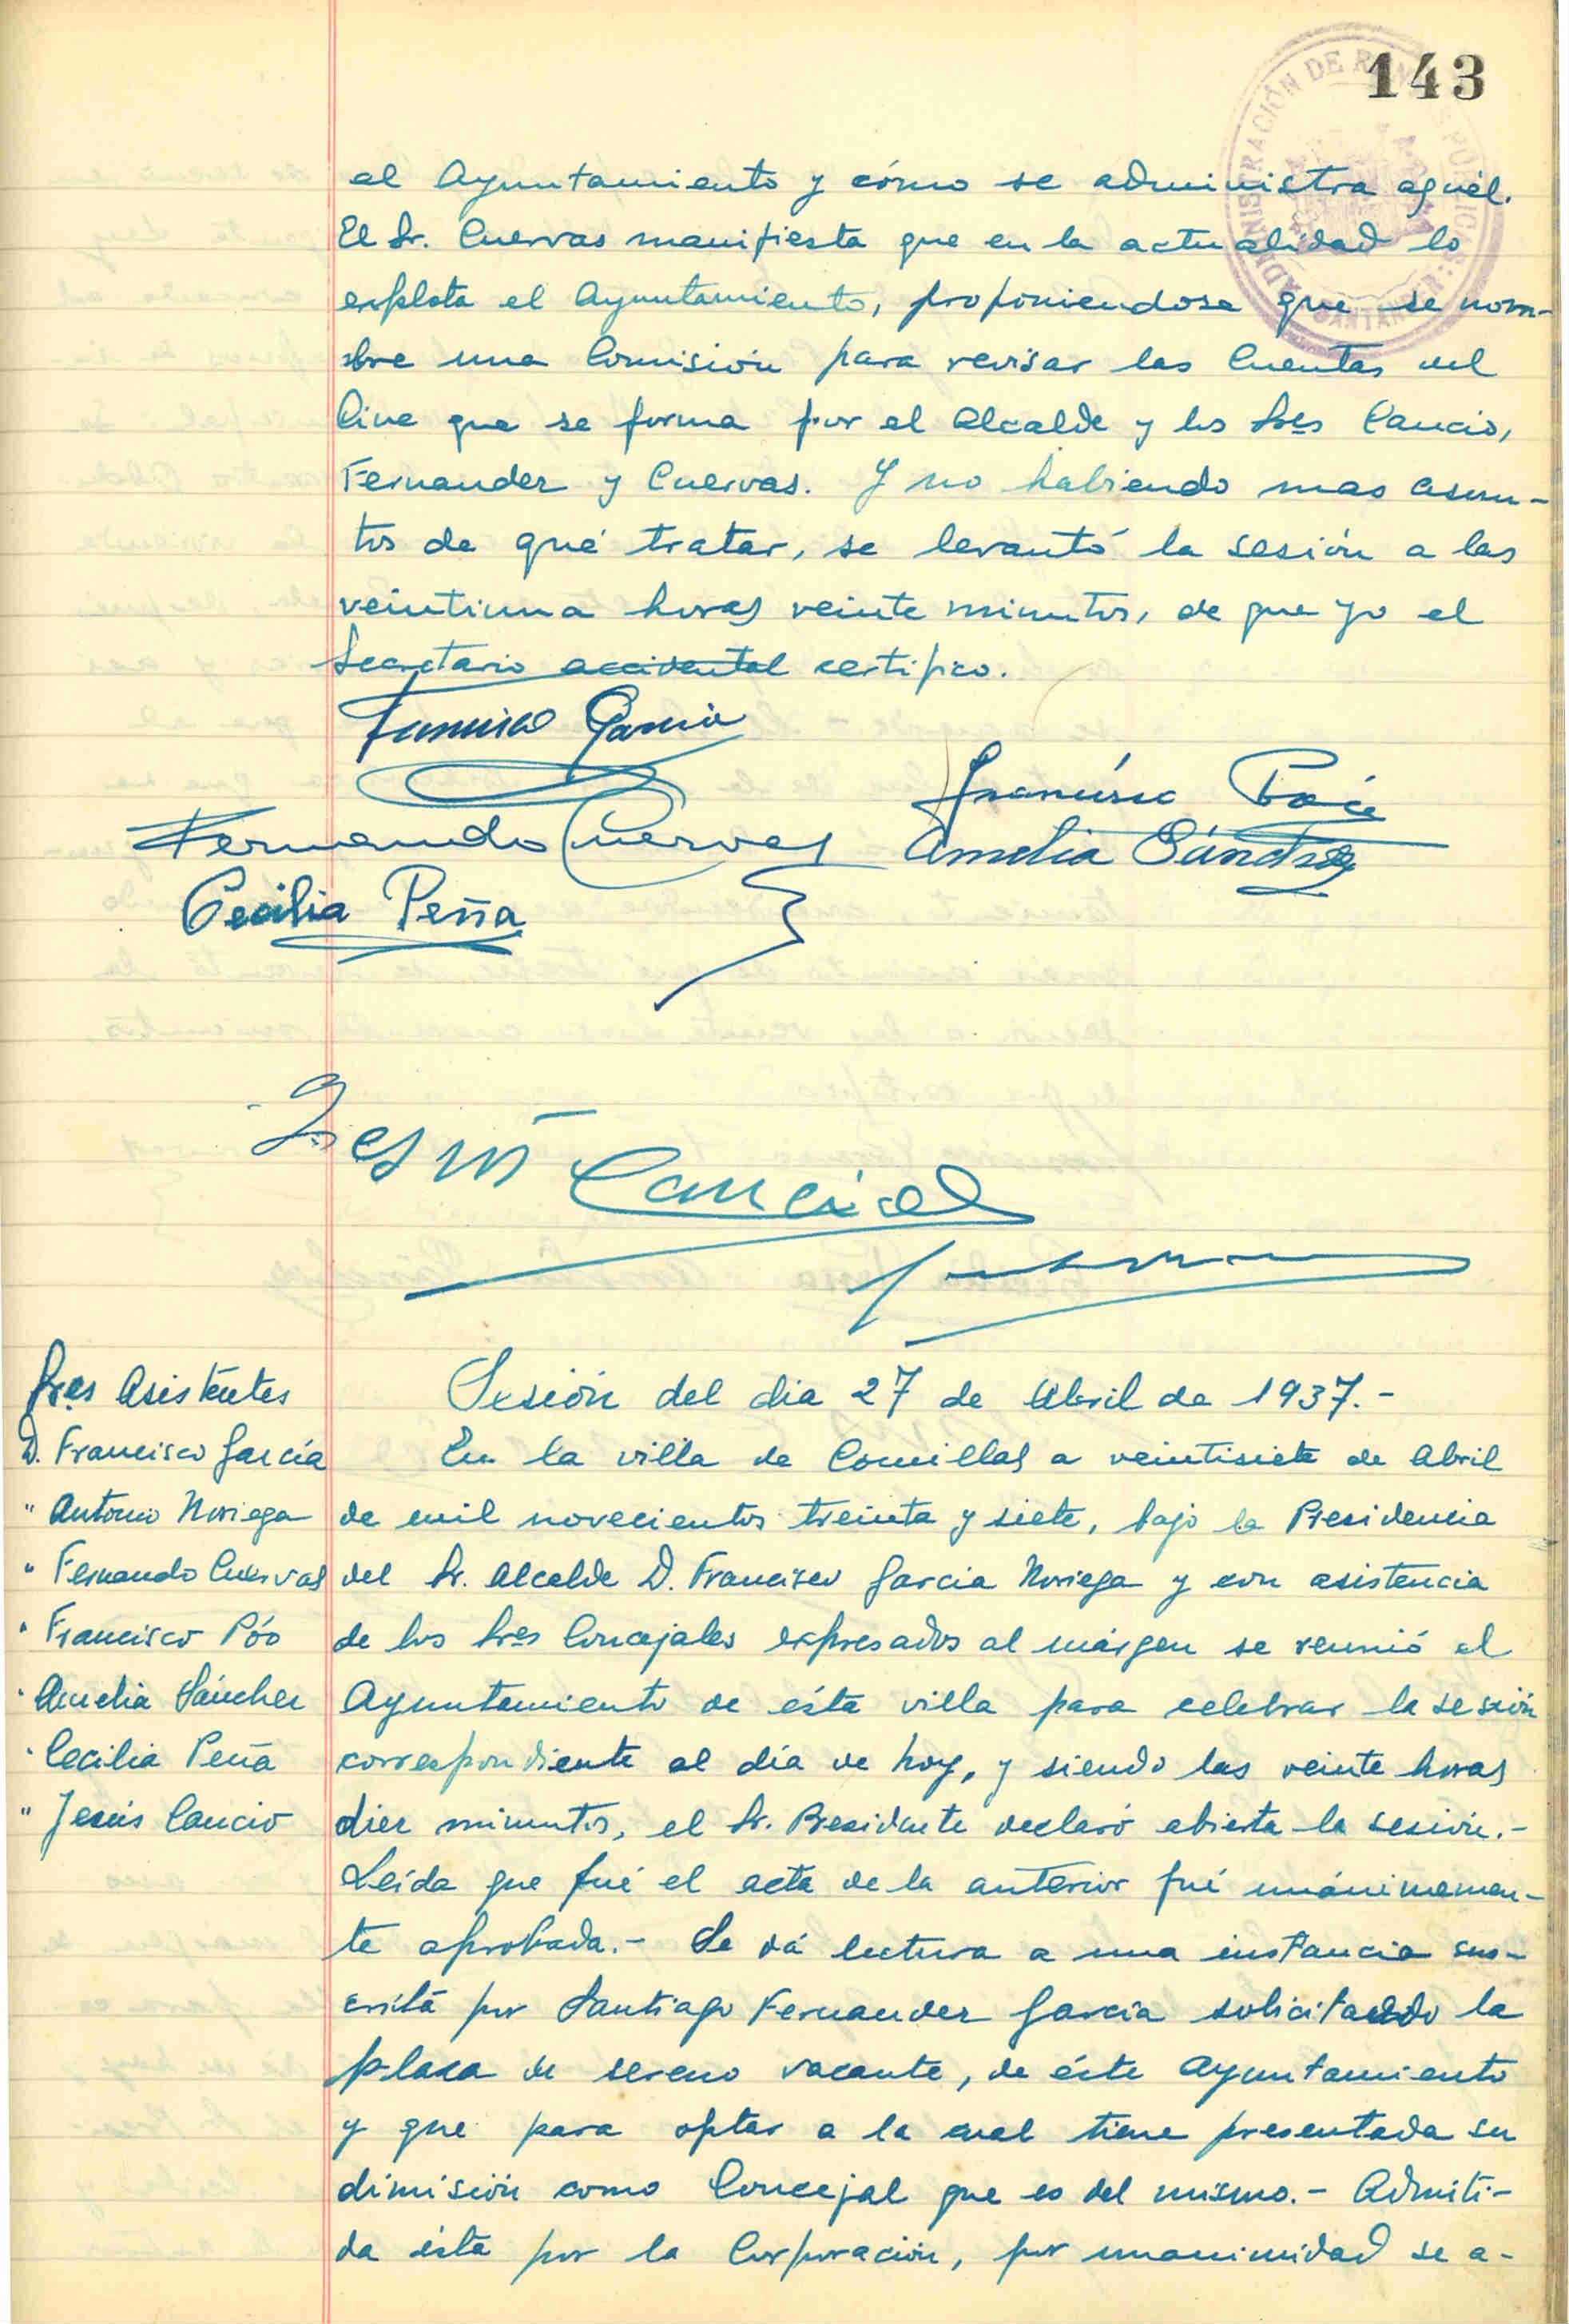 143
ADMINISTRACIÓN DE R
PÚBLICAS
SANTANDER
al Ayuntamiento y cómo se administra aquél.
El Sr. Cuervas manifiesta que en la actualidad lo
explota el Ayuntamiento, proponiendose que se nom-
bre una Comisión para revisar las Cuentas del
Cine que se forma por el Alcalde y los Sres Cancio,
Fernandez y Cuervas. Y no habiendo mas asun-
tos de qué tratar, se levantó la sesión a las
veintiuna horas veinte minutos, de que yo el
Secretario accidental certifico.
Francisco Garcia
Francisco Póo
Fernando Cuervas
Amelia Sánchez
Cecilia Peña
Jesús Cancio
Sres Asistentes
D. Francisco García
" Antonio Noriega
" Fernando Cuervas
" Francisco Póo
" Amelia Sánchez
" Cecilia Peña
" Jesús Cancio
Sesión del dia 27 de Abril de 1937.-
En la villa de Comillas a veintisiete de Abril
de mil novecientos treinta y siete, bajo la Presidencia
del Sr. Alcalde D. Francisco Garcia Noriega y con asistencia
de los Sres Concejales expresados al márgen se reunió el
Ayuntamiento de ésta villa para celebrar la sesión
correspondiente al día de hoy, y siendo las veinte horas
diez minutos, el Sr. Presidente declaró abierta la sesión.-
Leída que fué el acta de la anterior fué unánimemen-
te aprobada.- Se dá lectura a una instancia sus-
crita por Santiago Fernandez Garcia solicitando la
plaza de sereno vacante, de éste Ayuntamiento
y que para optar a la cual tiene presentada su
dimisión como Concejal que es del mismo.- Admiti-
da ésta por la Corporación, por unanimidad se a-